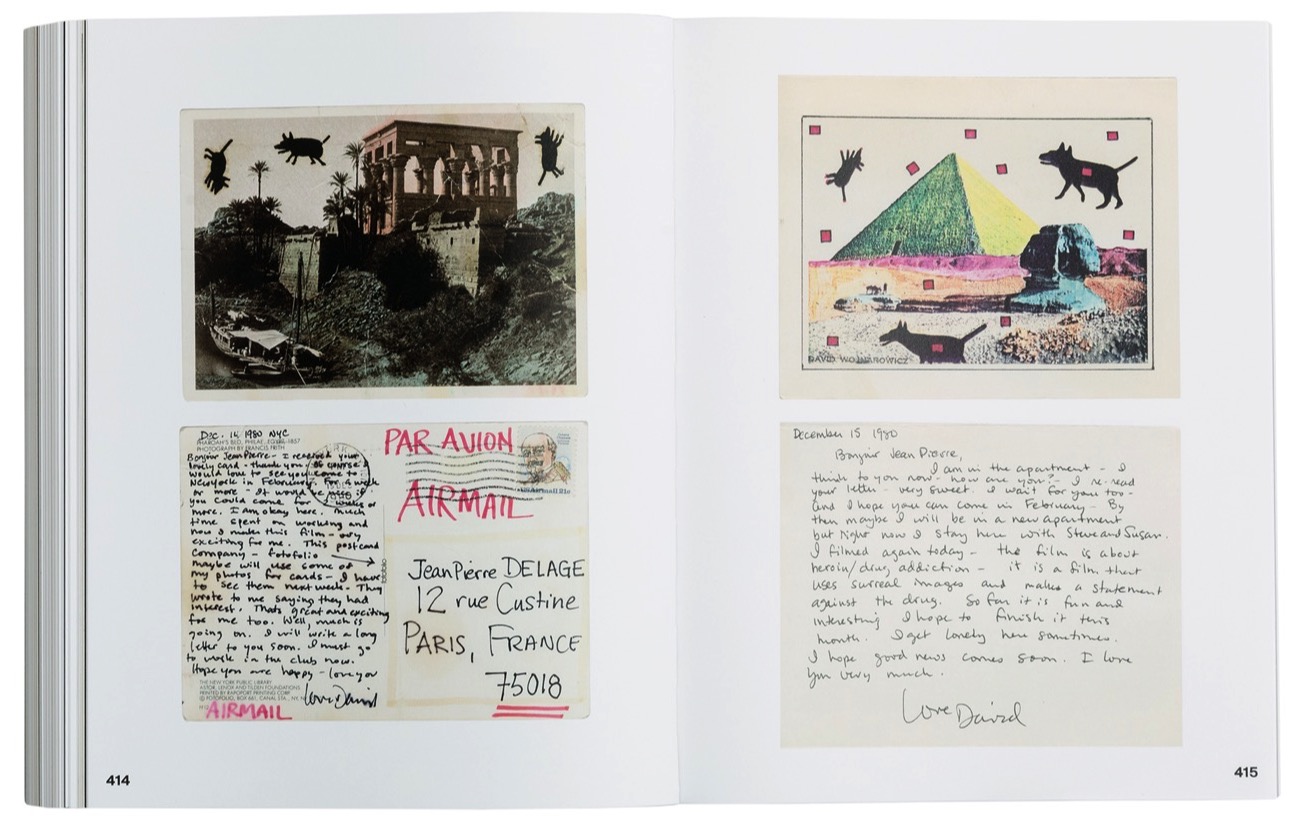 Dec. 14, 1980 NYC
PHAROAH'S BED, PHILAE, EGYPT-1857
PHOTOGRAPH BY FRANCIS FRITH
Bonjour Jean Pierre - I received your
lovely card - thank you. Of course I
would love to see you come to
New York in February. For a week
or more. It would be nice if
you could come for 2 weeks or
more. I am okay here. Much
time spent on working and
now I make this film - very
exciting for me. This postcard
company - fotofolio
maybe will use some of
my photos for cards - I have
to see them next week - They
wrote to me saying they had
interest. Thats great and exciting
for me too. Well, much is
going on. I will write a long
letter to you soon. I must go
to work in the club now.
Hope you are happy - love you
THE NEW YORK PUBLIC LIBRARY
ASTOR, LENOX AND TILDEN FOUNDATIONS
PRINTED BY RAPOPORT PRINTING CORP.
© FOTOFOLIO, BOX 661, CANAL STA., NY, N
Love David
AIRMAIL
PAR AVION
AIRMAIL
USAirmail 21c
Jean Pierre DELAGE
12 rue Custine
PARIS, FRANCE
75018
414
DAVID WOJNAROWICZ
December 15 1980
Bonjour Jean Pierre,
I am in the apartment - I
think to you now - how are you? - I re-read
your letter - very sweet. I wait for you too -
and I hope you can come in February - By
then maybe I will be in a new apartment
but right now I stay here with Steve and Susan.
I filmed again today - the film is about
heroin/drug addiction - it is a film that
uses surreal images and makes a statement
against the drug. So far it is fun and
interesting I hope to finish it this
month. I get lonely here sometimes.
I hope good news comes soon. I love
you very much.
Love David
415